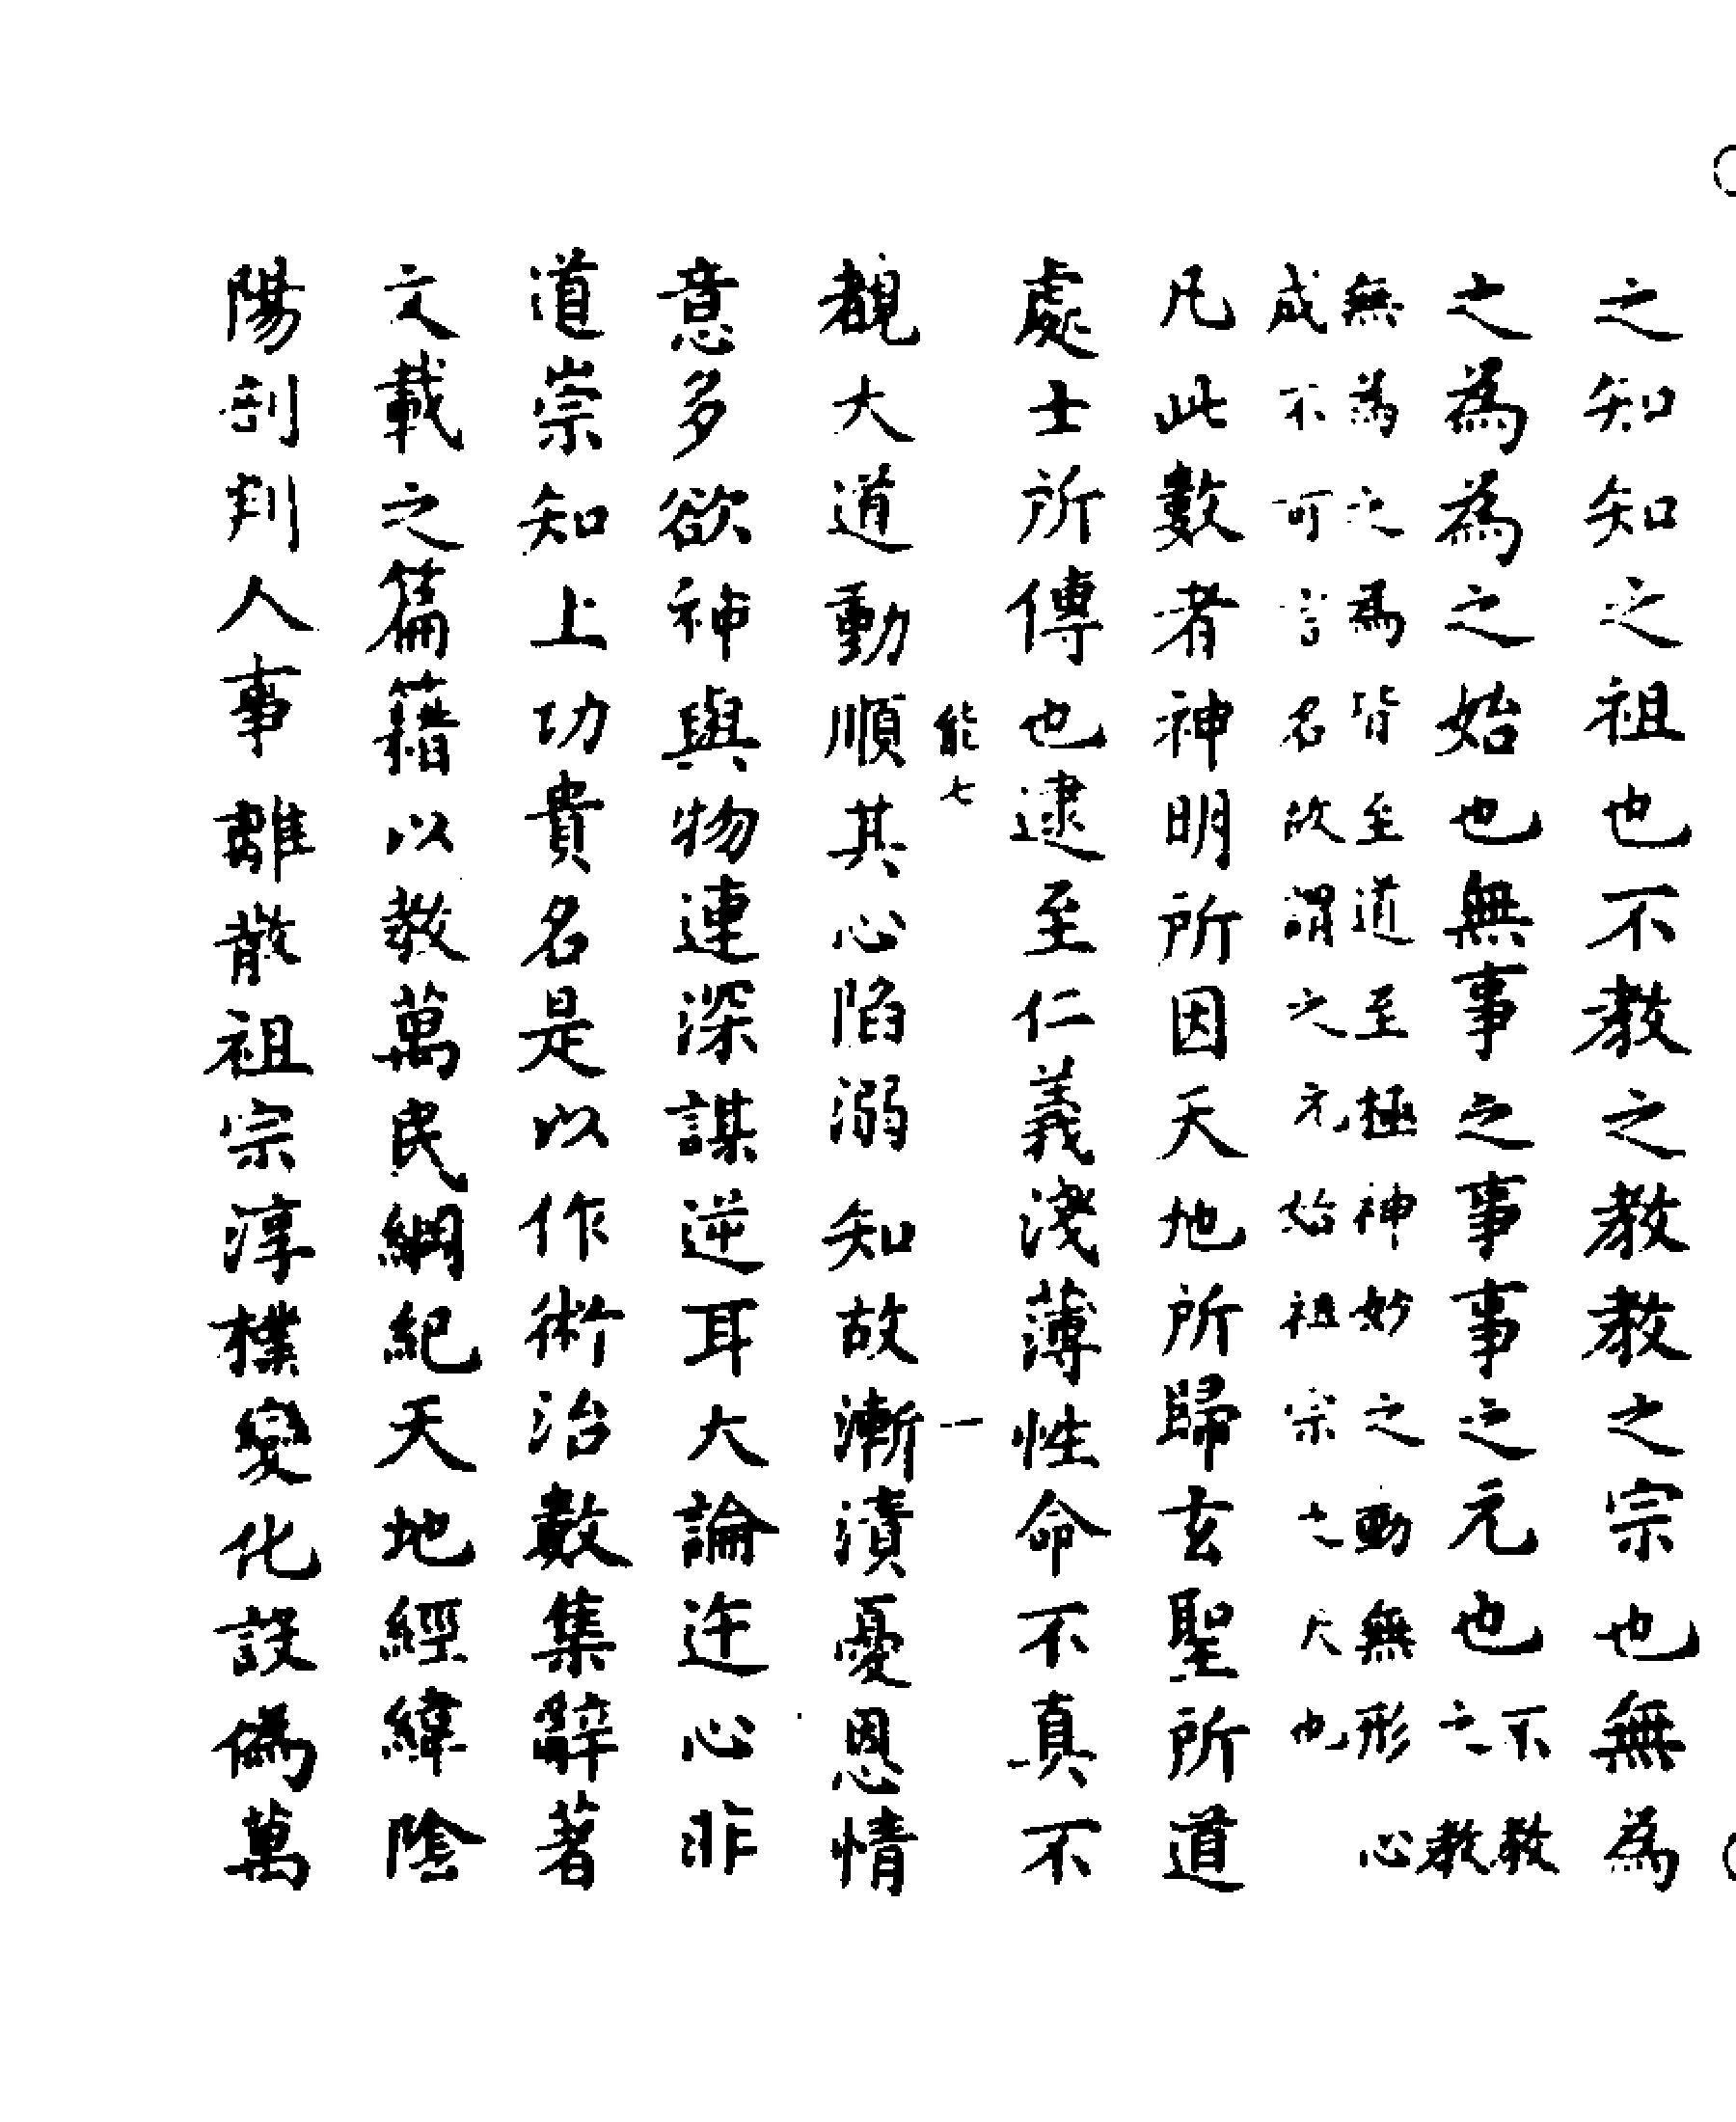 之知知之祖也不教之教教之宗也無為
之為為之始也無事之事事之元也不教
之教
無為之為皆至道至極神妙之動無形心
成不可言名故謂之元始祖宗之大也
凡此數者神明所因天地所歸玄聖所道
處士所傳也逮至仁義淺薄性命不真不
能七一
覩大道動順其心陷溺知故漸漬憂恩情
意多欲神與物連深謀逆耳大論迕心非
道崇知上功貴名是以作術治數集辭著
文載之篇籍以教萬民綱紀天地經緯陰
陽剖判人事離散祖宗淳樸變化設偽萬